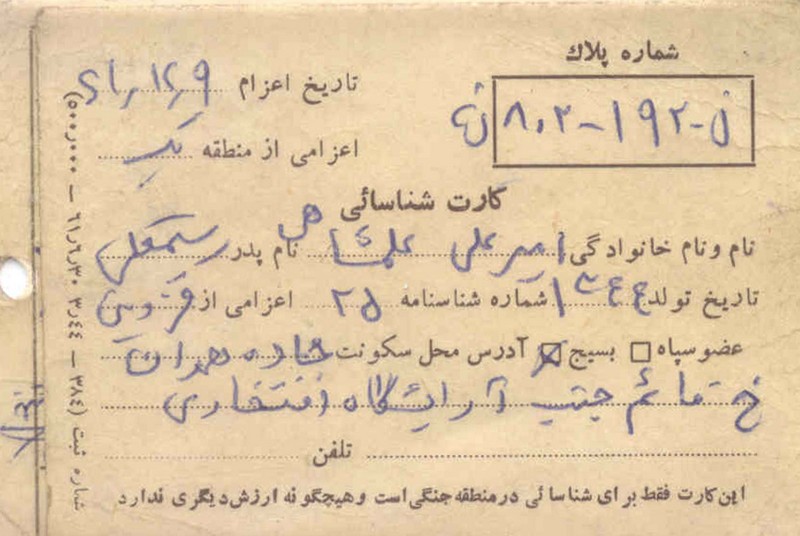 شماره پلاك
ن-۱۹۲-۸۰۲
تاریخ اعزام
اعزامی از منطقه یک
کارت شناسائی
نام و نام خانوادگی امیرعلی علمشاهی نام پدر رستمعلی
تاریخ تولد ۱۳۴۴ شماره شناسنامه ۲۵ اعزامی از قزوین
عضو سپاه □ بسیج ☒ آدرس محل سکونت جاده همدان
خ قائم جنب آرایشگاه افتخاری
تلفن
این کارت فقط برای شناسائی در منطقه جنگی است و هیچگونه ارزش دیگری ندارد
شماره ثبت (۳۸٤ – ٣ر٤٤ ٦١ر٦ر٣٠ – ٥٠٠ر٠٠٠)